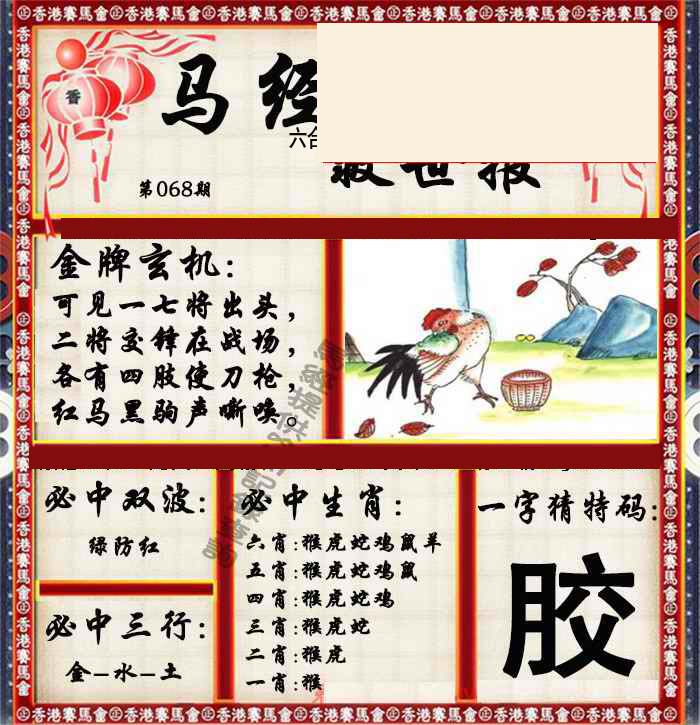 马经
六合
第068期
救世报
金牌玄机:
可见一七将出头,
二将交锋在战场,
各有四肢使刀枪,
红马黑驹声嘶唤。
必中双波:
绿防红
必中三行:
金-水-土
必中生肖:
六肖:猴虎蛇鸡鼠羊
五肖:猴虎蛇鸡鼠
四肖:猴虎蛇鸡
三肖:猴虎蛇
二肖:猴虎
一肖:猴
一字猜特码:
胶
香港賽馬會